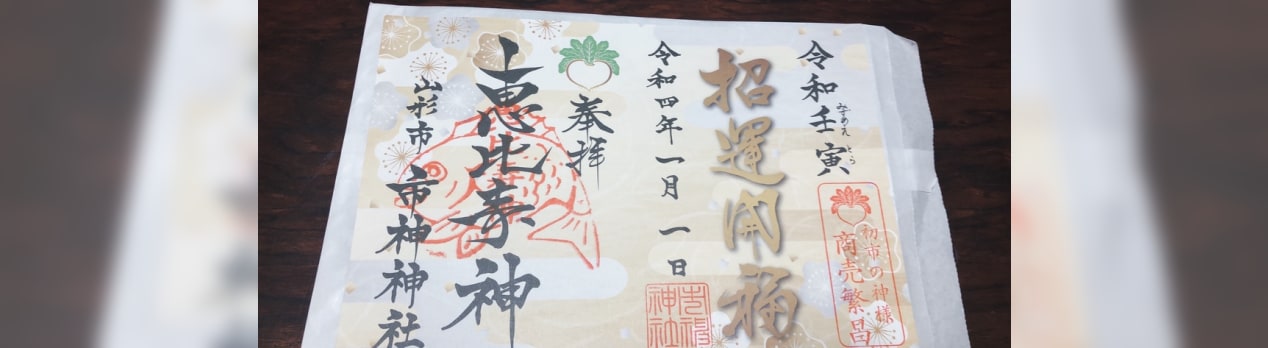 令和壬寅
みずのえ とら
初市の神様
商売繁昌
招運開福
令和四年一月一日
奉拝
恵比寿神
山形市 市神神社